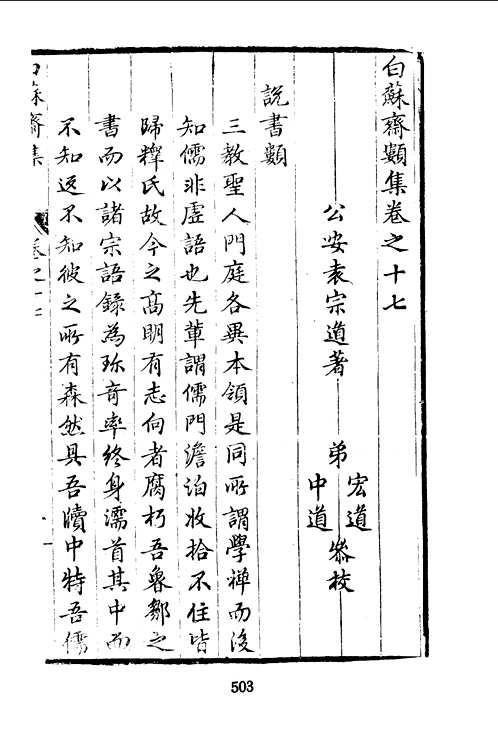 白蘇齋類集卷之十七
公安袁宗道著 弟宏道中道叅校
說書類
三教聖人門庭各異本領是同所謂學禪而後
知儒非虛語也先軰謂儒門澹泊收拾不住皆
歸釋氏故今之髙明有志向者腐朽吾魯鄒之
書而以諸宗語録為珎竒率終身濡首其中而
不知返不知彼之所有森然具吾牘中特吾儒
白蘇齋集 卷之十七
503